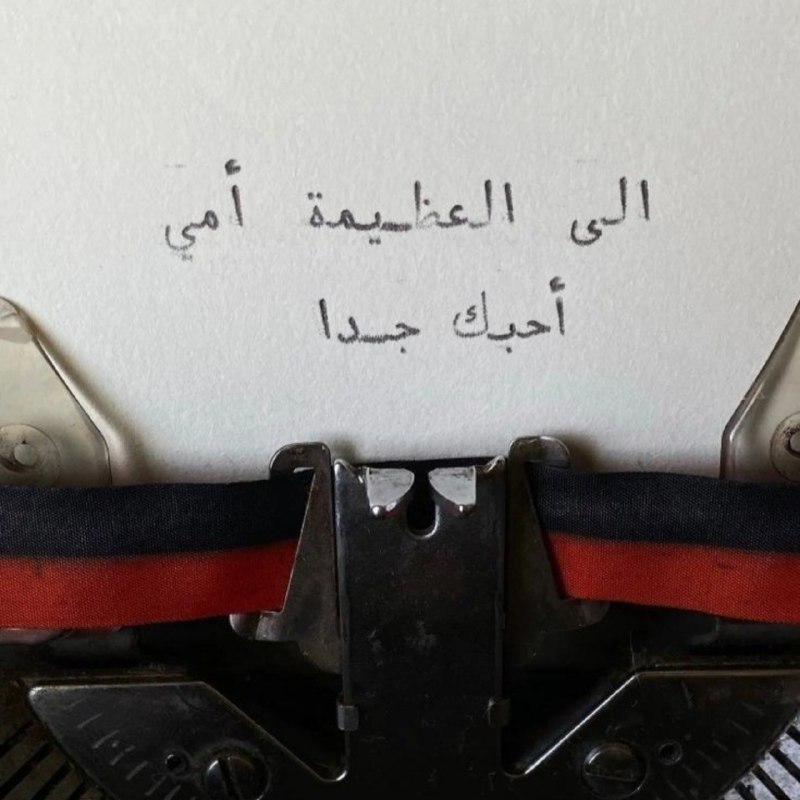 الى العظيمة أمي
أحبك جدا